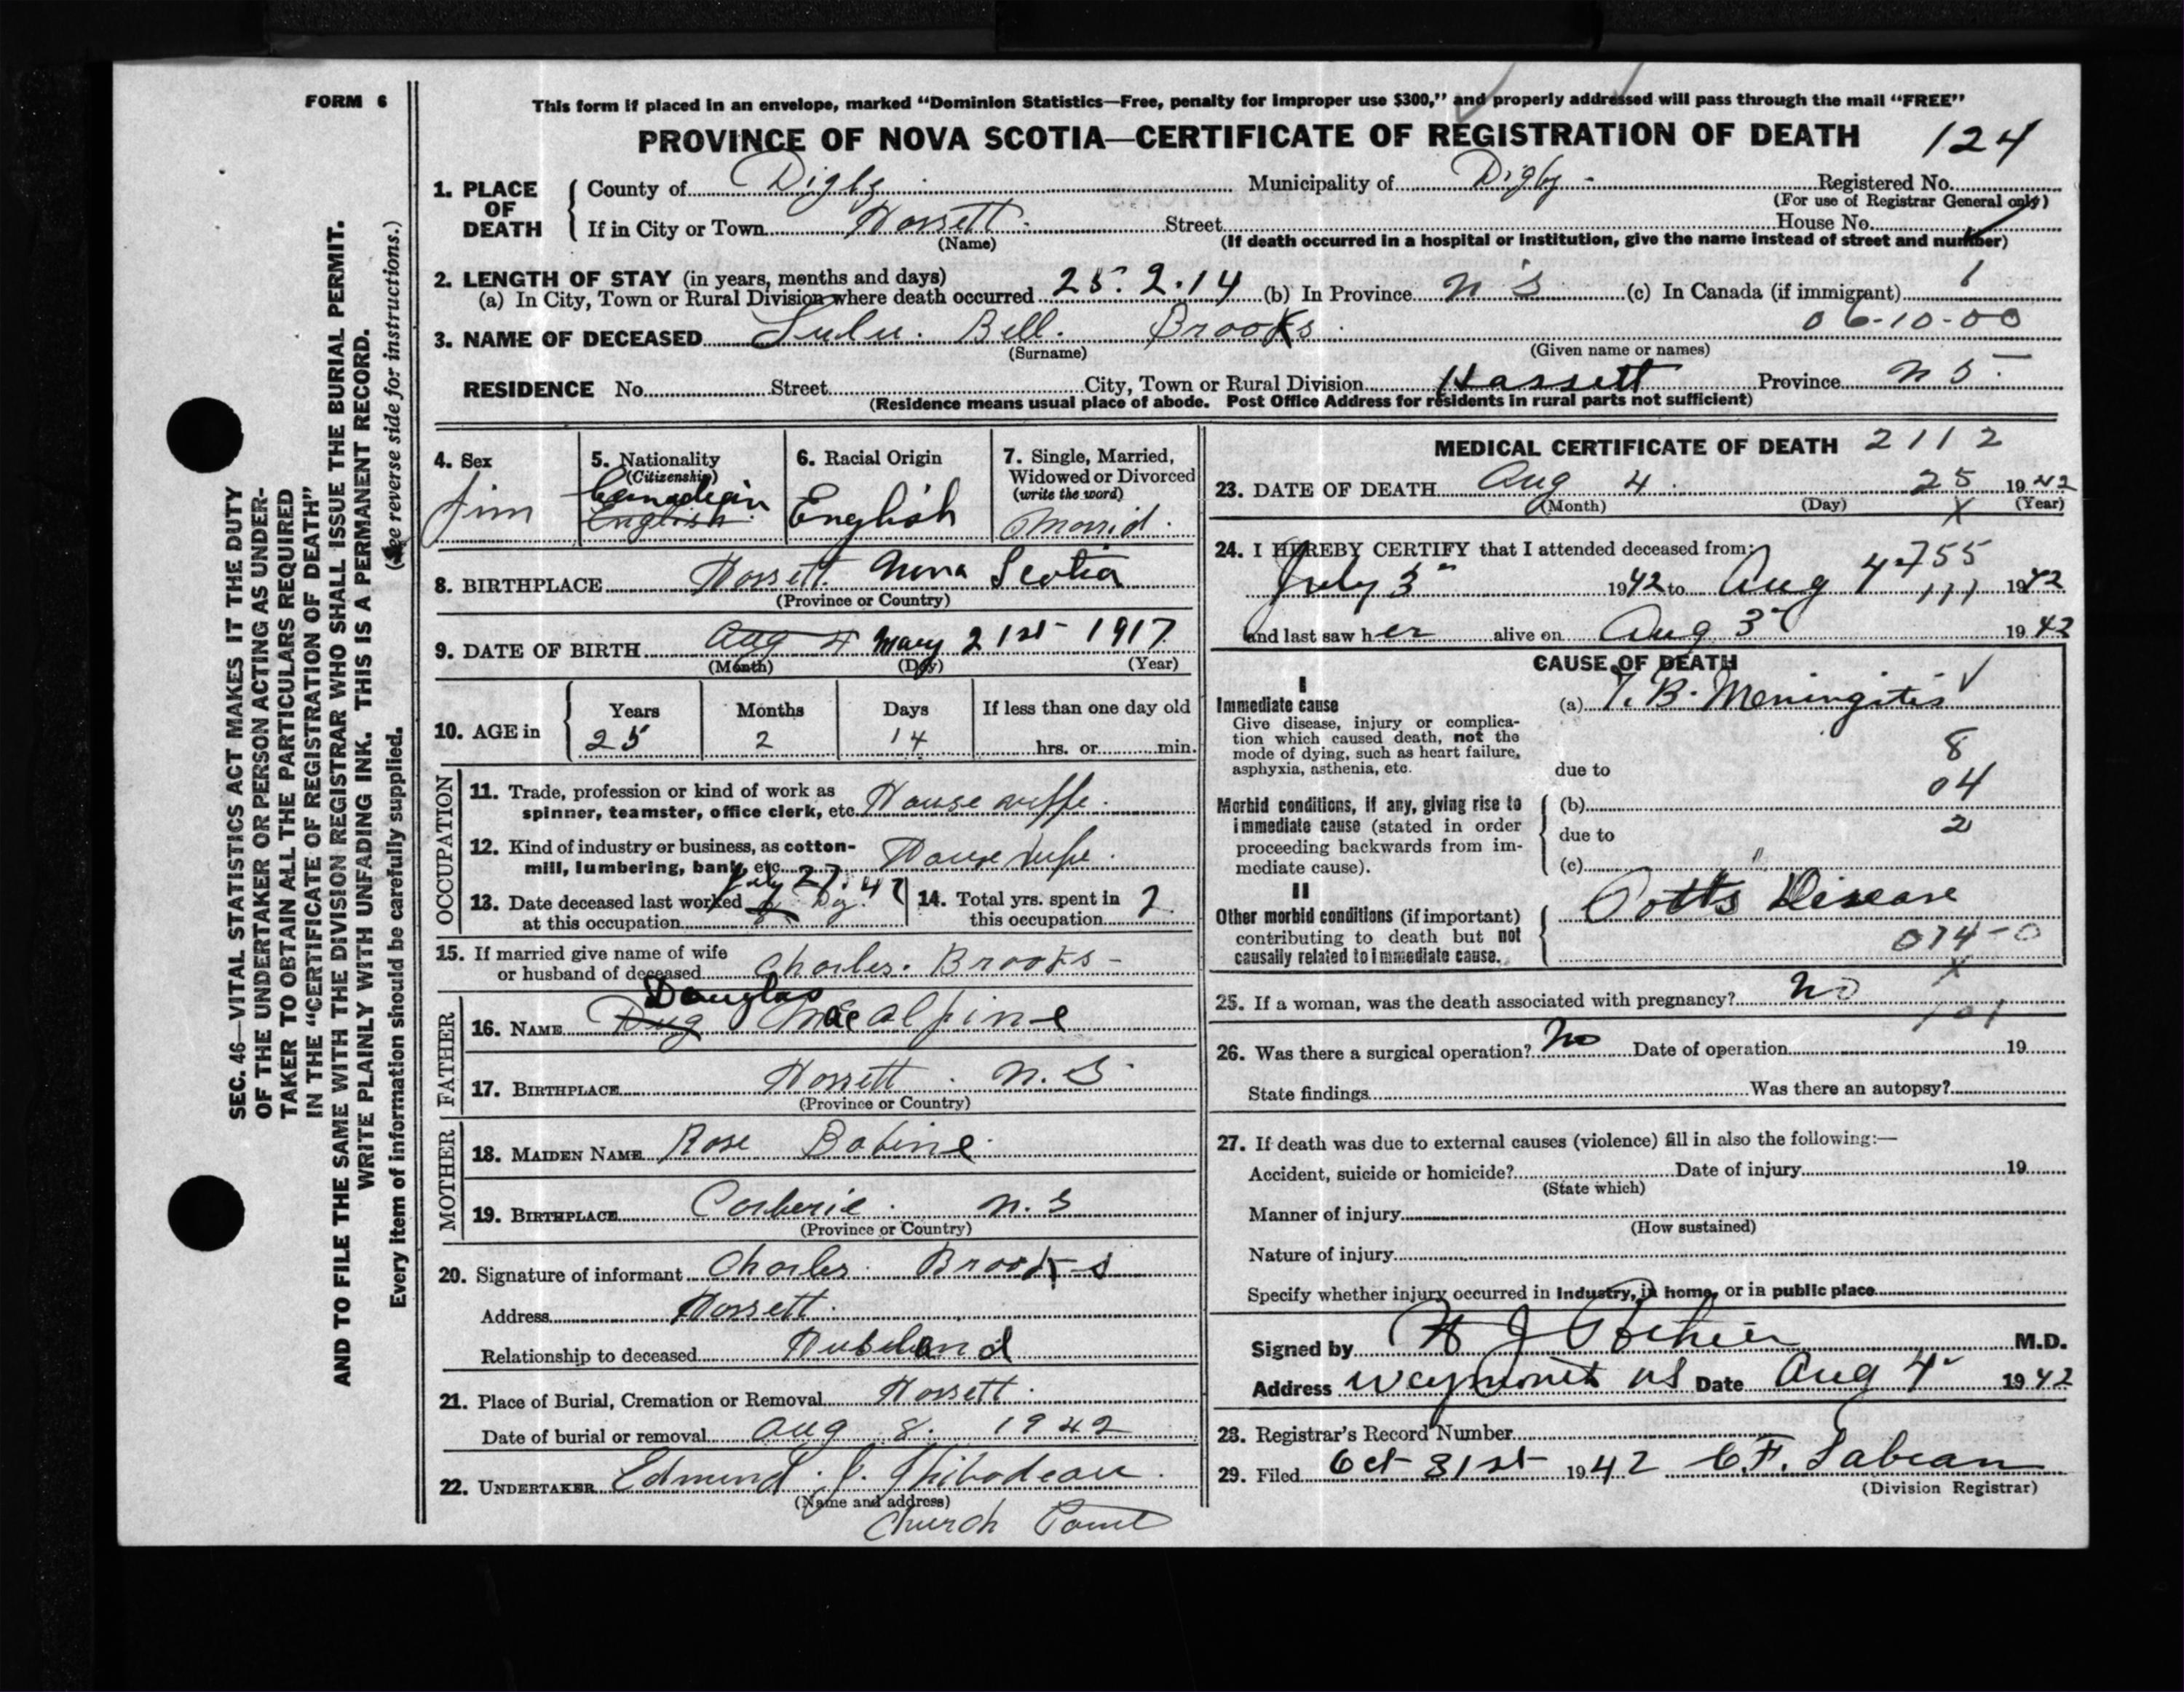 FORM 6
This form if placed in an envelope, marked “Dominion Statistics—Free, penalty for improper use $300,” and properly addressed will pass through the mail “FREE”
PROVINCE OF NOVA SCOTIA—CERTIFICATE OF REGISTRATION OF DEATH 124
1. PLACE OF DEATH County of Digby Municipality of Digby Registered No.
(For use of Registrar General only)
If in City or Town Hassett Street House No.
(Name) (If death occurred in a hospital or institution, give the name instead of street and number)
2. LENGTH OF STAY (in years, months and days)
(a) In City, Town or Rural Division where death occurred 25.2.14 (b) In Province N S (c) In Canada (if immigrant) 1
06-10-00
3. NAME OF DECEASED Lulu. Bell. Brooks
(Surname) (Given name or names)
RESIDENCE No. Street City, Town or Rural Division Hassett Province N S
(Residence means usual place of abode. Post Office Address for residents in rural parts not sufficient)
4. Sex
Fim
5. Nationality
(Citizenship)
Canadian
English
6. Racial Origin
English
7. Single, Married,
Widowed or Divorced
(write the word)
Marrid.
8. BIRTHPLACE Hassett Nova Scotia
(Province or Country)
9. DATE OF BIRTH Aug 4 May 21st 1917
(Month) (Day) (Year)
10. AGE in
Years Months Days If less than one day old
25 2 14 hrs. or min.
OCCUPATION
11. Trade, profession or kind of work as
spinner, teamster, office clerk, etc. House wiffe.
12. Kind of industry or business, as cotton-
mill, lumbering, bank, etc. House wife.
13. Date deceased last worked July 27. 42
at this occupation
14. Total yrs. spent in
this occupation 2
15. If married give name of wife
or husband of deceased Charles. Brooks
FATHER
Douglas
16. NAME Dug MacAlpine
17. BIRTHPLACE Hassett N. S.
(Province or Country)
MOTHER
18. MAIDEN NAME Rose Babine
19. BIRTHPLACE Corberie N. S
(Province or Country)
20. Signature of informant Charles Brooks
Address Hassett.
Relationship to deceased Husband
21. Place of Burial, Cremation or Removal Hassett.
Date of burial or removal Aug 8. 1942
22. UNDERTAKER Edmund. J. Thibodeau.
(Name and address)
Church Point
MEDICAL CERTIFICATE OF DEATH 2112
23. DATE OF DEATH Aug 4 25 1942
(Month) (Day) (Year)
X
24. I HEREBY CERTIFY that I attended deceased from:
755
July 3 1942 to Aug 4 111 1942
and last saw her alive on Aug 3 1942
CAUSE OF DEATH
I
Immediate cause
Give disease, injury or complica-
tion which caused death, not the
mode of dying, such as heart failure,
asphyxia, asthenia, etc.
(a) T. B. Meningitis
8
due to
04
Morbid conditions, if any, giving rise to
immediate cause (stated in order
proceeding backwards from im-
mediate cause).
(b)
2
due to
(c)
II
Other morbid conditions (if important)
contributing to death but not
causally related to immediate cause.
Potts Disease
074-0
X
25. If a woman, was the death associated with pregnancy? No
101
26. Was there a surgical operation? No Date of operation 19
State findings Was there an autopsy?
27. If death was due to external causes (violence) fill in also the following:—
Accident, suicide or homicide? Date of injury 19
(State which)
Manner of injury
(How sustained)
Nature of injury
Specify whether injury occurred in industry, in home, or in public place
Signed by M.D.
Address Weymouth NS Date Aug 4 1942
28. Registrar's Record Number
29. Filed Oct 31st 1942 C.F. Sabean
(Division Registrar)
SEC. 46—VITAL STATISTICS ACT MAKES IT THE DUTY
OF THE UNDERTAKER OR PERSON ACTING AS UNDER-
TAKER TO OBTAIN ALL THE PARTICULARS REQUIRED
IN THE “CERTIFICATE OF REGISTRATION OF DEATH”
AND TO FILE THE SAME WITH THE DIVISION REGISTRAR WHO SHALL ISSUE THE BURIAL PERMIT.
WRITE PLAINLY WITH UNFADING INK. THIS IS A PERMANENT RECORD.
Every item of information should be carefully supplied. (See reverse side for instructions.)